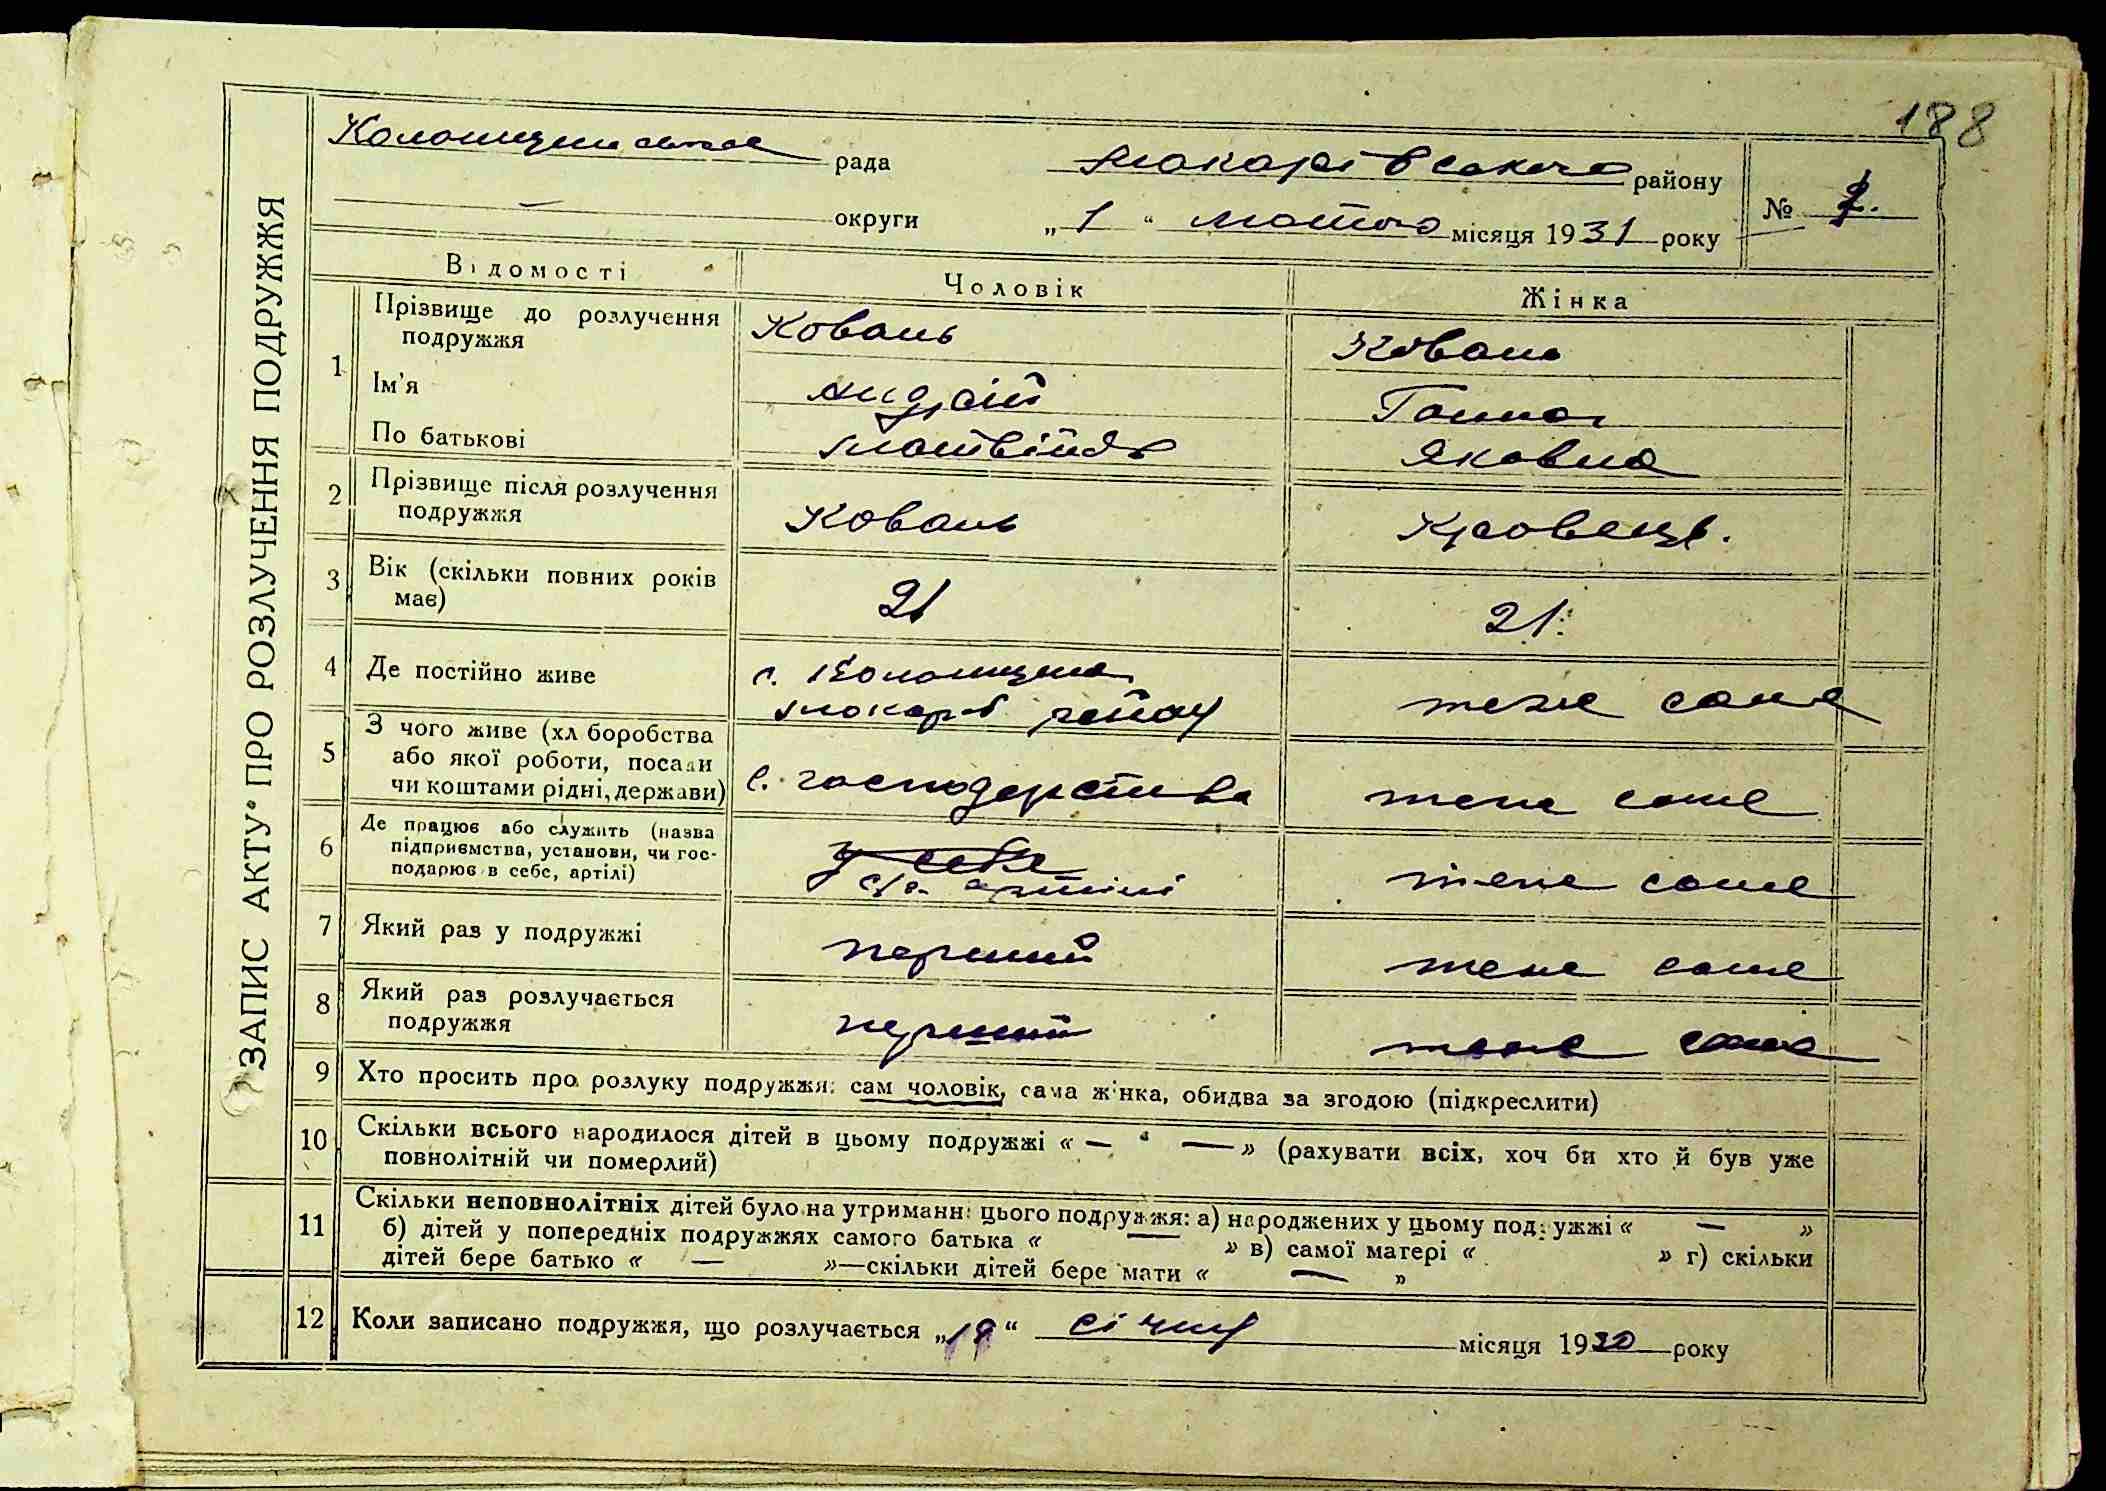 188
Колонщинська рада Макарівського району № 2.
— округи „1“ лютого місяця 1931 року
ЗАПИС АКТУ ПРО РОЗЛУЧЕННЯ ПОДРУЖЖЯ
Відомості Чоловік Жінка
1 Прізвище до розлучення подружжя Коваль Коваль
Ім'я Андрій Ганна
По батькові Матвійов Яковна
2 Прізвище після розлучення подружжя Коваль Кравець.
3 Вік (скільки повних років має) 21 21
4 Де постійно живе с. Колонщина теж саме
Макарів району
5 З чого живе (хліборобства
або якої роботи, посади
чи коштами рідні, держави) с. господарства теж саме
6 Де працює або служить (назва
підприємства, установи, чи гос-
подарює в себе, артілі) у себе теж саме
с/г. артілі
7 Який раз у подружжі перший теж саме
8 Який раз розлучається
подружжя перший теж саме
9 Хто просить про розлуку подружжя: сам чоловік, сама жінка, обидва за згодою (підкреслити)
10 Скільки всього народилося дітей в цьому подружжі « — “ — » (рахувати всіх, хоч би хто й був уже
повнолітній чи померлий)
11 Скільки неповнолітніх дітей було на утриманні цього подружжя: а) народжених у цьому подружжі « — »
б) дітей у попередніх подружжях самого батька « — » в) самої матері « » г) скільки
дітей бере батько « — »—скільки дітей бере мати « — »
12 Коли записано подружжя, що розлучається „19“ січня місяця 1930 року